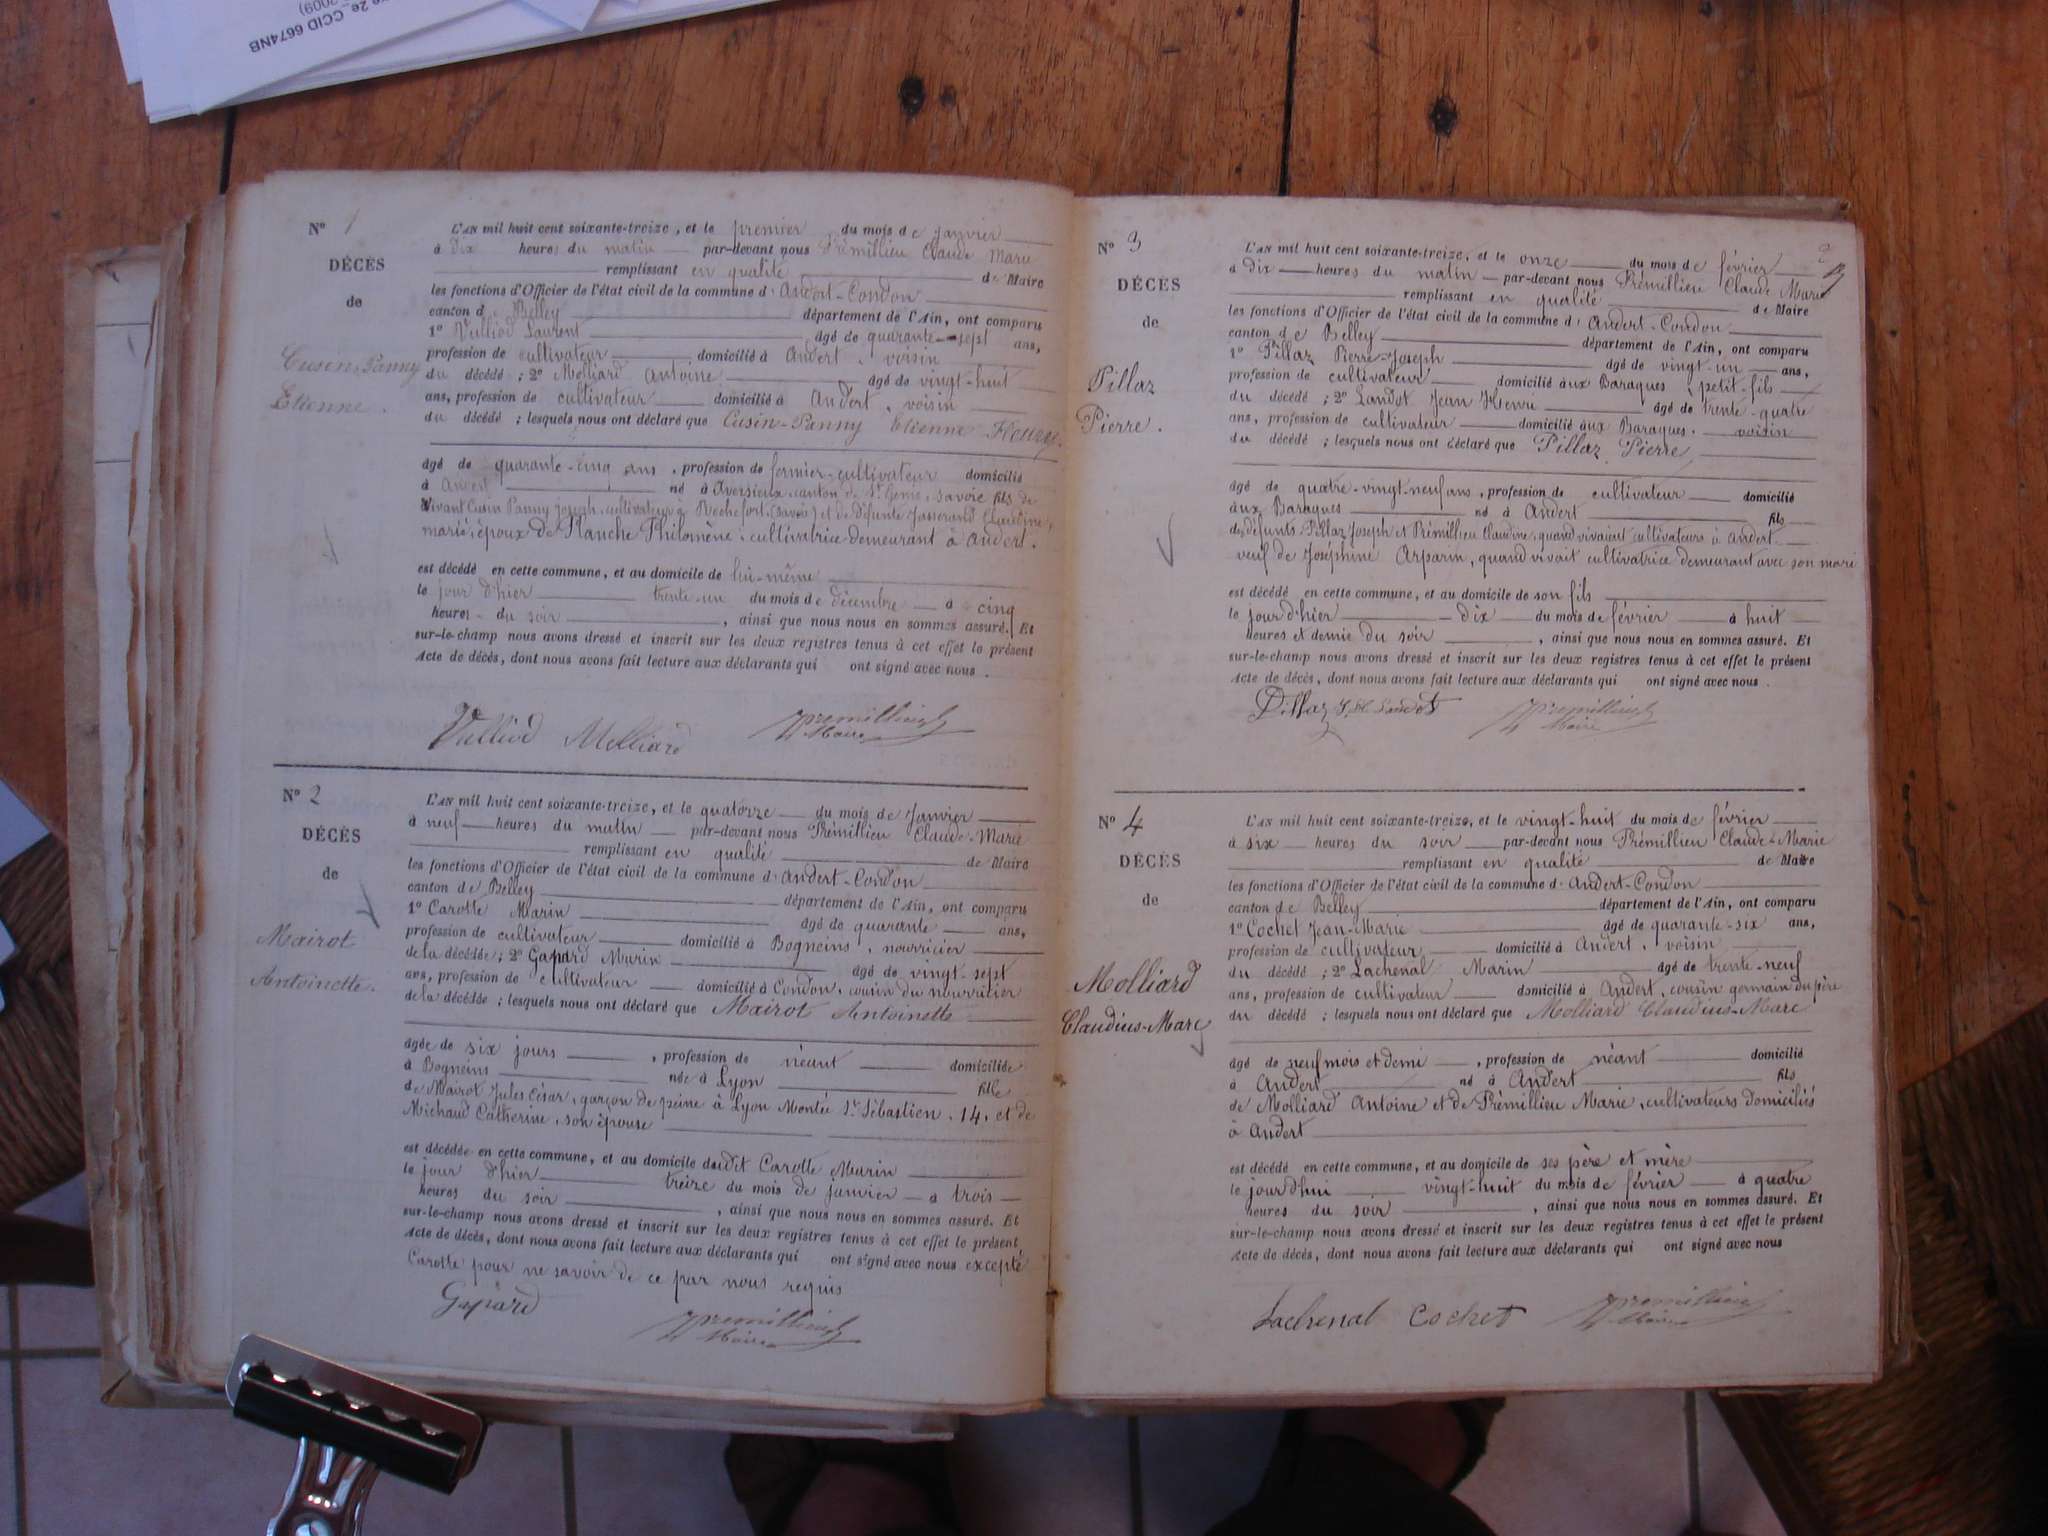 2e_CCID 6674NB
2009)
N° 1
DÉCÈS
de
Cusin-Panny
Etienne.
L'AN mil huit cent soixante-treize, et le premier du mois de janvier
à dix heures du matin par-devant nous Prémillieu Claude Marie
remplissant en qualité de Maire
les fonctions d'Officier de l'état civil de la commune d' Andert-Condon
canton de Belley département de l'Ain, ont comparu
1° Vulliod Laurent âgé de quarante-sept ans,
profession de cultivateur domicilié à Andert, voisin
du décédé; 2° Molliard Antoine âgé de vingt-huit
ans, profession de cultivateur domicilié à Andert, voisin
du décédé ; lesquels nous ont déclaré que Cusin-Panny Etienne
âgé de quarante-cinq ans, profession de fermier-cultivateur domicilié
à Andert né à Aversieux canton de St Genis, Savoie fils de
vivant Cusin Panny Joseph, cultivateur à Rochefort, (Savoie) et de défunte Jasserand Claudine,
marié, époux de Planche Philomène, cultivatrice demeurant à Andert.
est décédé en cette commune, et au domicile de lui-même
le jour d'hier trente-un du mois de décembre à cinq
heures du soir , ainsi que nous nous en sommes assuré. Et
sur-le-champ nous avons dressé et inscrit sur les deux registres tenus à cet effet le présent
Acte de décès, dont nous avons fait lecture aux déclarants qui ont signé avec nous.
Vulliod Molliard Premillieu
Maire
N° 2
DÉCÈS
de
Mairot
Antoinette.
L'AN mil huit cent soixante-treize, et le quatorze du mois de Janvier
à neuf heures du matin par-devant nous Prémillieu Claude-Marie
remplissant en qualité de Maire
les fonctions d'Officier de l'état civil de la commune d' Andert-Condon
canton de Belley département de l'Ain, ont comparu
1° Carotte Marin âgé de quarante ans,
profession de cultivateur domicilié à Bogneins, nourricier
de la décédée; 2° Gapard Marin âgé de vingt-sept
ans, profession de cultivateur domicilié à Condon, cousin du nourricier
de la décédée ; lesquels nous ont déclaré que Mairot Antoinette
âgée de six jours , profession de néant domiciliée
à Bogneins née à Lyon fille
de Mairot Jules César, garçon de peine à Lyon Montée St Sébastien, 14, et de
Michaud Catherine, son épouse
est décédée en cette commune, et au domicile dudit Carotte Marin
le jour d'hier treize du mois de janvier à trois
heures du soir , ainsi que nous nous en sommes assuré. Et
sur-le-champ nous avons dressé et inscrit sur les deux registres tenus à cet effet le présent
Acte de décès, dont nous avons fait lecture aux déclarants qui ont signé avec nous excepté
Carotte pour ne savoir de ce par nous requis
Gapard Premillieu
Maire
N° 3
DÉCÈS
de
Pillaz
Pierre.
L'AN mil huit cent soixante-treize, et le onze du mois de février
à dix heures du matin par-devant nous Prémillieu Claude Marie
remplissant en qualité de Maire
les fonctions d'Officier de l'état civil de la commune d' Andert-Condon
canton de Belley département de l'Ain, ont comparu
1° Pillaz Pierre-Joseph âgé de vingt-un ans,
profession de cultivateur domicilié aux Baraques, petit-fils
du décédé; 2° Landot Jean Henri âgé de trente-quatre
ans, profession de cultivateur domicilié aux Baraques. voisin
du décédé ; lesquels nous ont déclaré que Pillaz Pierre
âgé de quatre-vingt-neuf ans, profession de cultivateur domicilié
aux Baraques né à Andert fils
des défunts Pillaz Joseph et Prémillieu Claudine, quand vivaient cultivateurs à Andert
veuf de Joséphine Arparin, quand vivait cultivatrice demeurant avec son mari
est décédé en cette commune, et au domicile de son fils
le jour d'hier dix du mois de février à huit
heures et demie du soir , ainsi que nous nous en sommes assuré. Et
sur-le-champ nous avons dressé et inscrit sur les deux registres tenus à cet effet le présent
Acte de décès, dont nous avons fait lecture aux déclarants qui ont signé avec nous.
Pillaz J. H. Landot Premillieu
Maire
N° 4
DÉCÈS
de
Molliard
Claudius-Marc
L'AN mil huit cent soixante-treize, et le vingt-huit du mois de février
à six heures du soir par-devant nous Prémillieu Claude-Marie
remplissant en qualité de Maire
les fonctions d'Officier de l'état civil de la commune d' Andert-Condon
canton de Belley département de l'Ain, ont comparu
1° Cochet Jean-Marie âgé de quarante-six ans,
profession de cultivateur domicilié à Andert, voisin
du décédé; 2° Lachenal Marin âgé de trente-neuf
ans, profession de cultivateur domicilié à Andert, cousin germain du père
du décédé ; lesquels nous ont déclaré que Molliard Claudius-Marc
âgé de neuf mois et demi , profession de néant domicilié
à Andert né à Andert fils
de Molliard Antoine et de Prémillieu Marie, cultivateurs domiciliés
à Andert
est décédé en cette commune, et au domicile de ses père et mère
le jourd'hui vingt-huit du mois de février à quatre
heures du soir , ainsi que nous nous en sommes assuré. Et
sur-le-champ nous avons dressé et inscrit sur les deux registres tenus à cet effet le présent
Acte de décès, dont nous avons fait lecture aux déclarants qui ont signé avec nous
Lachenal Cochet Premillieu
Maire